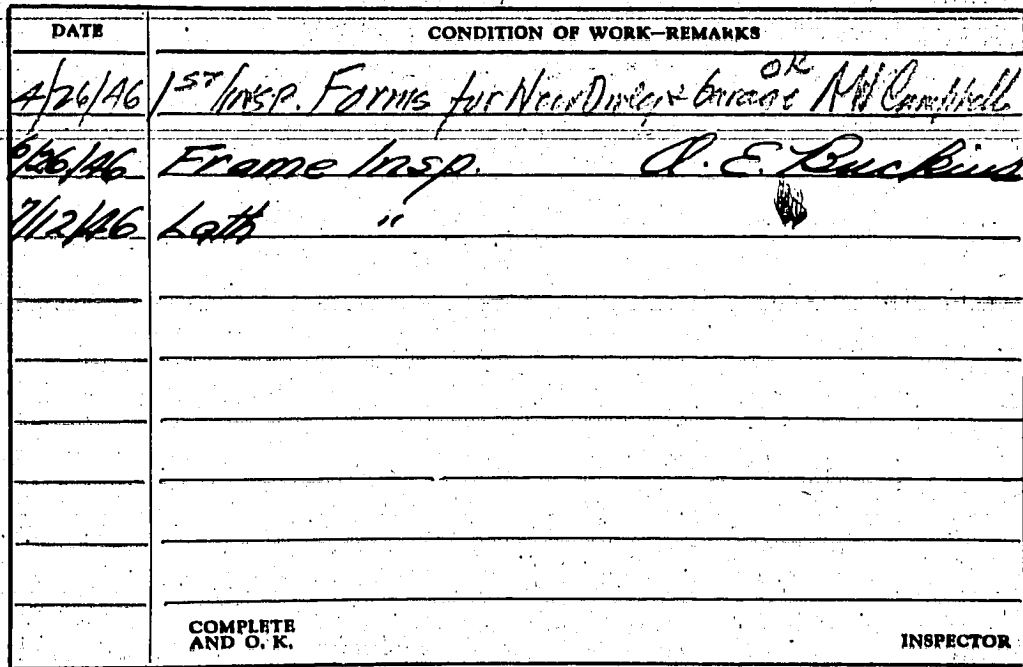 DATE CONDITION OF WORK—REMARKS
4/26/46 1ST Insp. Forms for New Dwlg & Garage OK Campbell
6/26/46 Frame Insp. A. E. Buckius
7/12/46 Lath "
COMPLETE
AND O. K. INSPECTOR